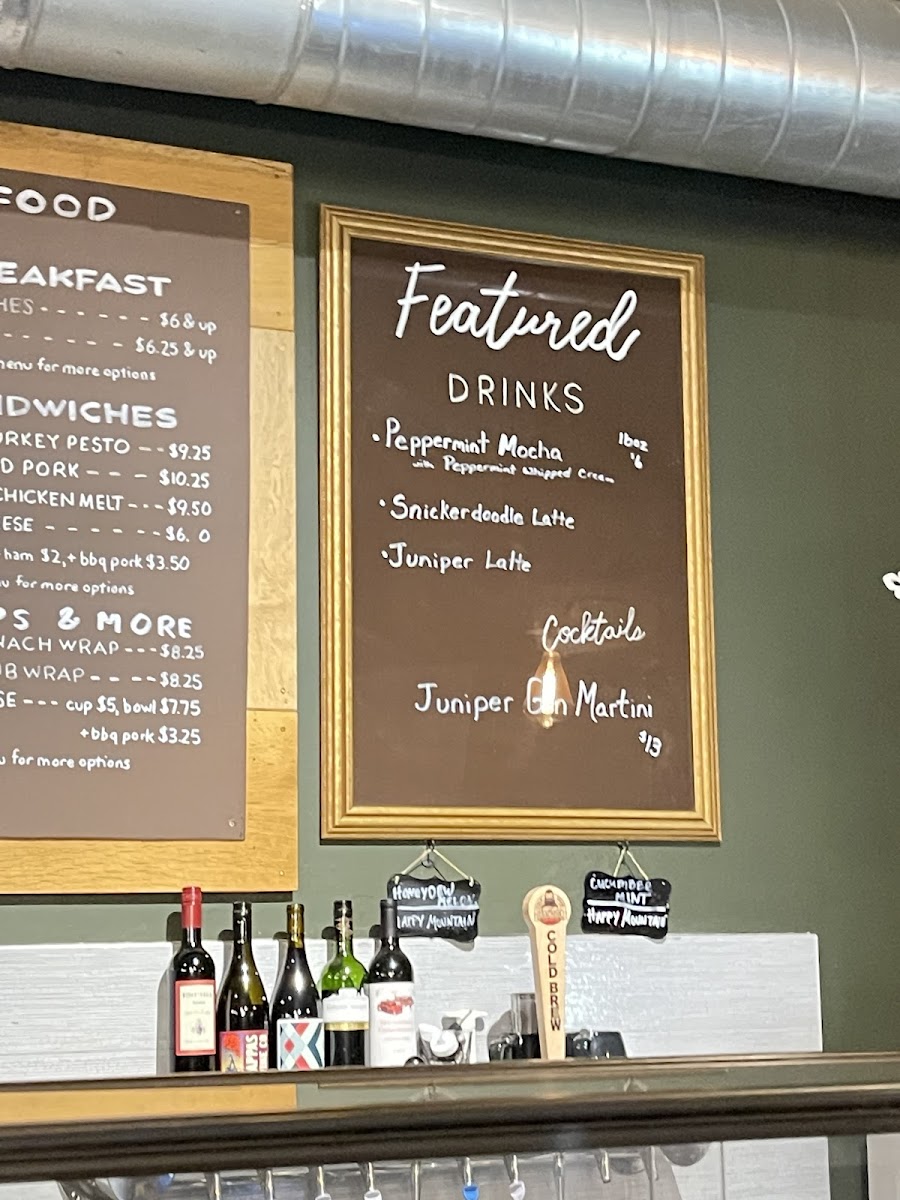 FOOD
EAKFAST
HES - - - - - - $6 & up
- - - - - - $6.25 & up
menu for more options
NDWICHES
URKEY PESTO - - $9.25
D PORK - - - $10.25
CHICKEN MELT - - - $9.50
ESE - - - - - - $6. 0
ham $2, + bbq pork $3.50
u for more options
PS & MORE
NACH WRAP - - - $8.25
UB WRAP - - - - $8.25
SE - - - cup $5, bowl $7.75
+ bbq pork $3.25
u for more options
Featured
DRINKS
• Peppermint Mocha 16oz
with Peppermint Whipped Cream $6
• Snickerdoodle Latte
• Juniper Latte
Cocktails
Juniper Gin Martini
$13
HONEYDEW
MELON
HAPPY MOUNTAIN
CUCUMBER
MINT
HAPPY MOUNTAIN
COLD BREW